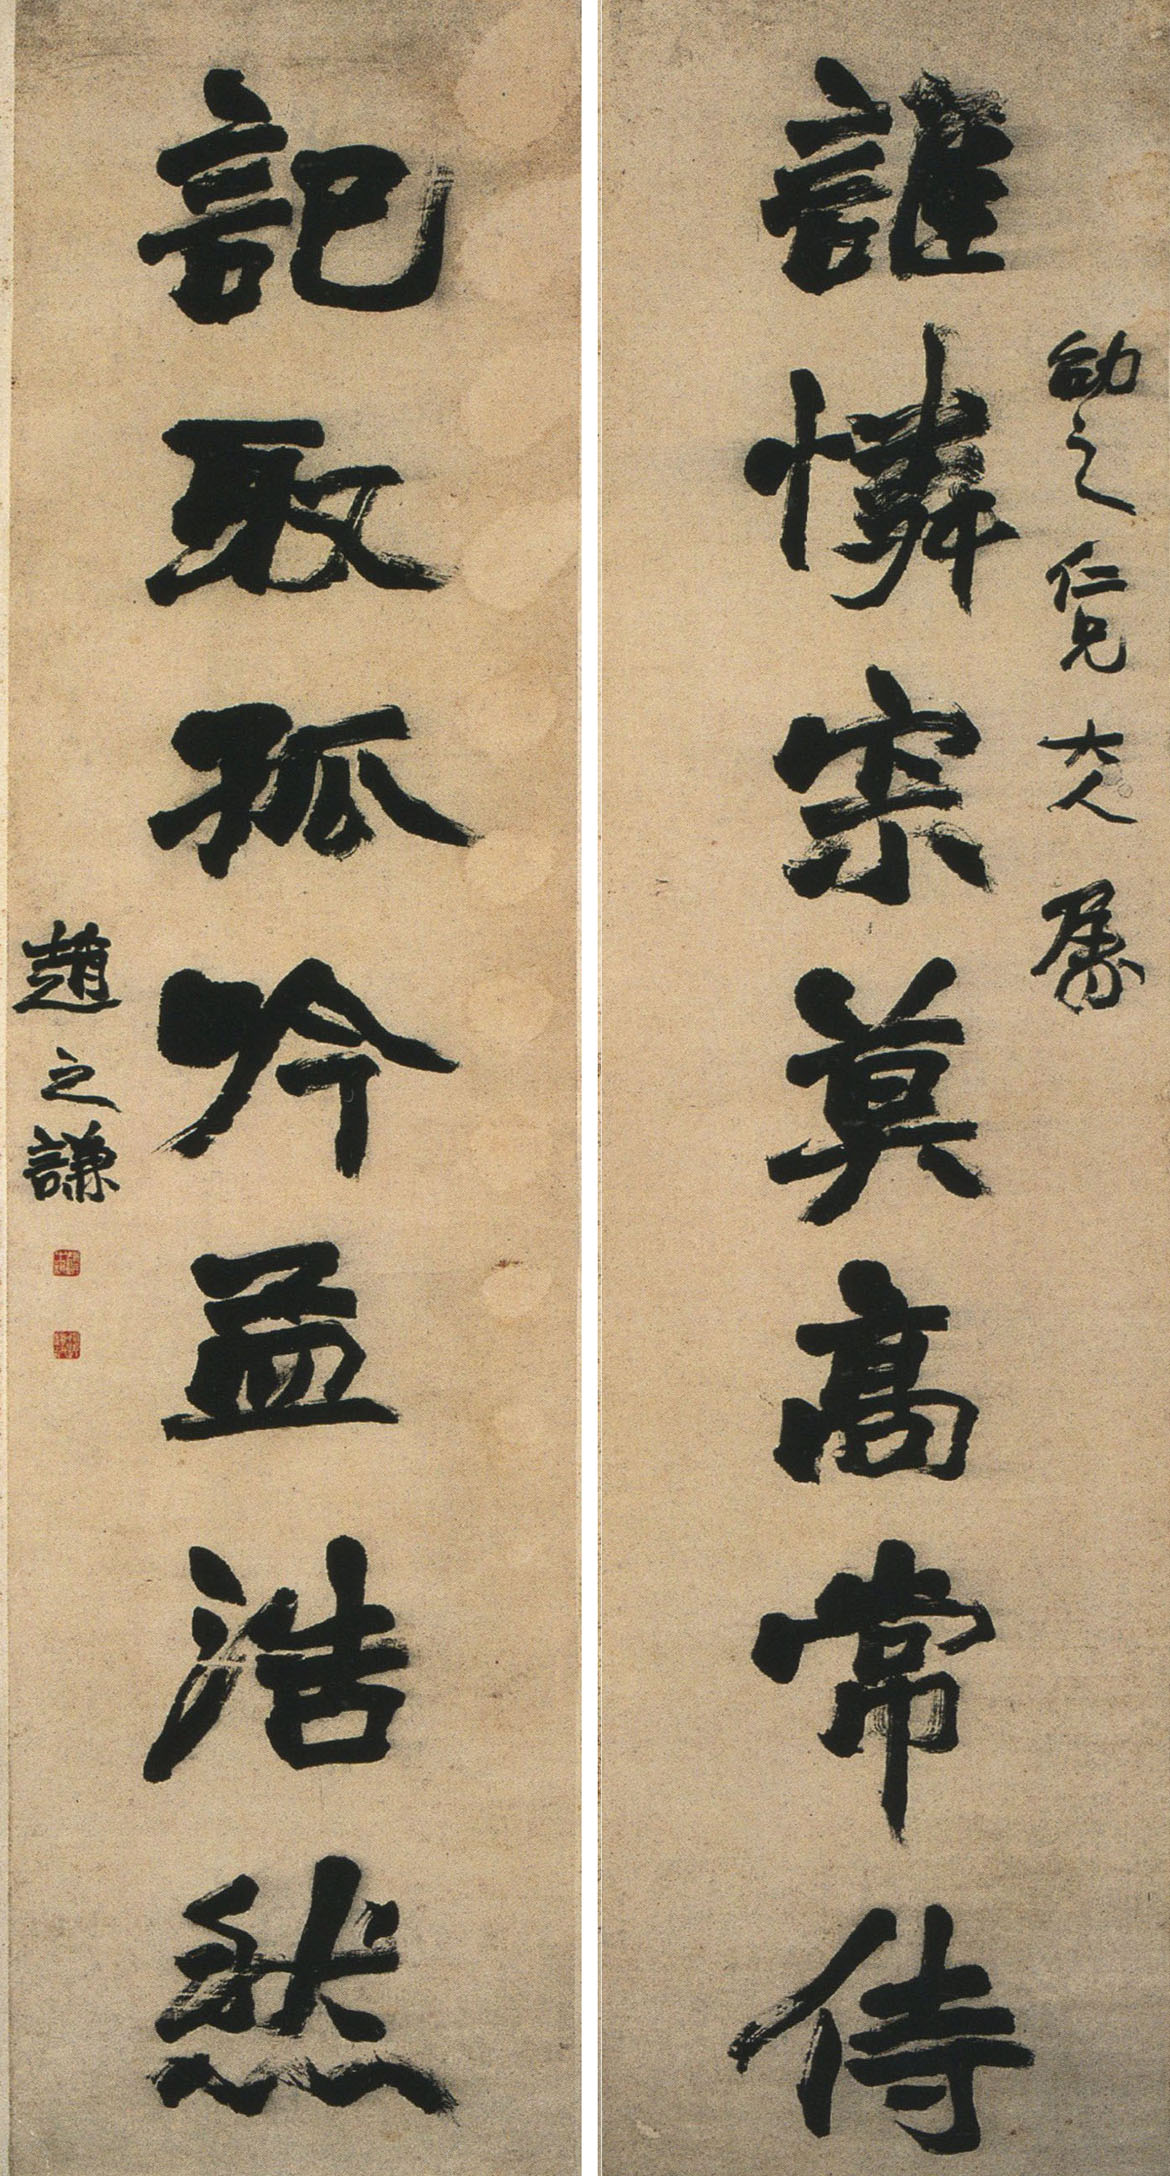 之仁兄大人屬
誰憐寂莫高常侍
記取孤吟孟浩然
趙之謙